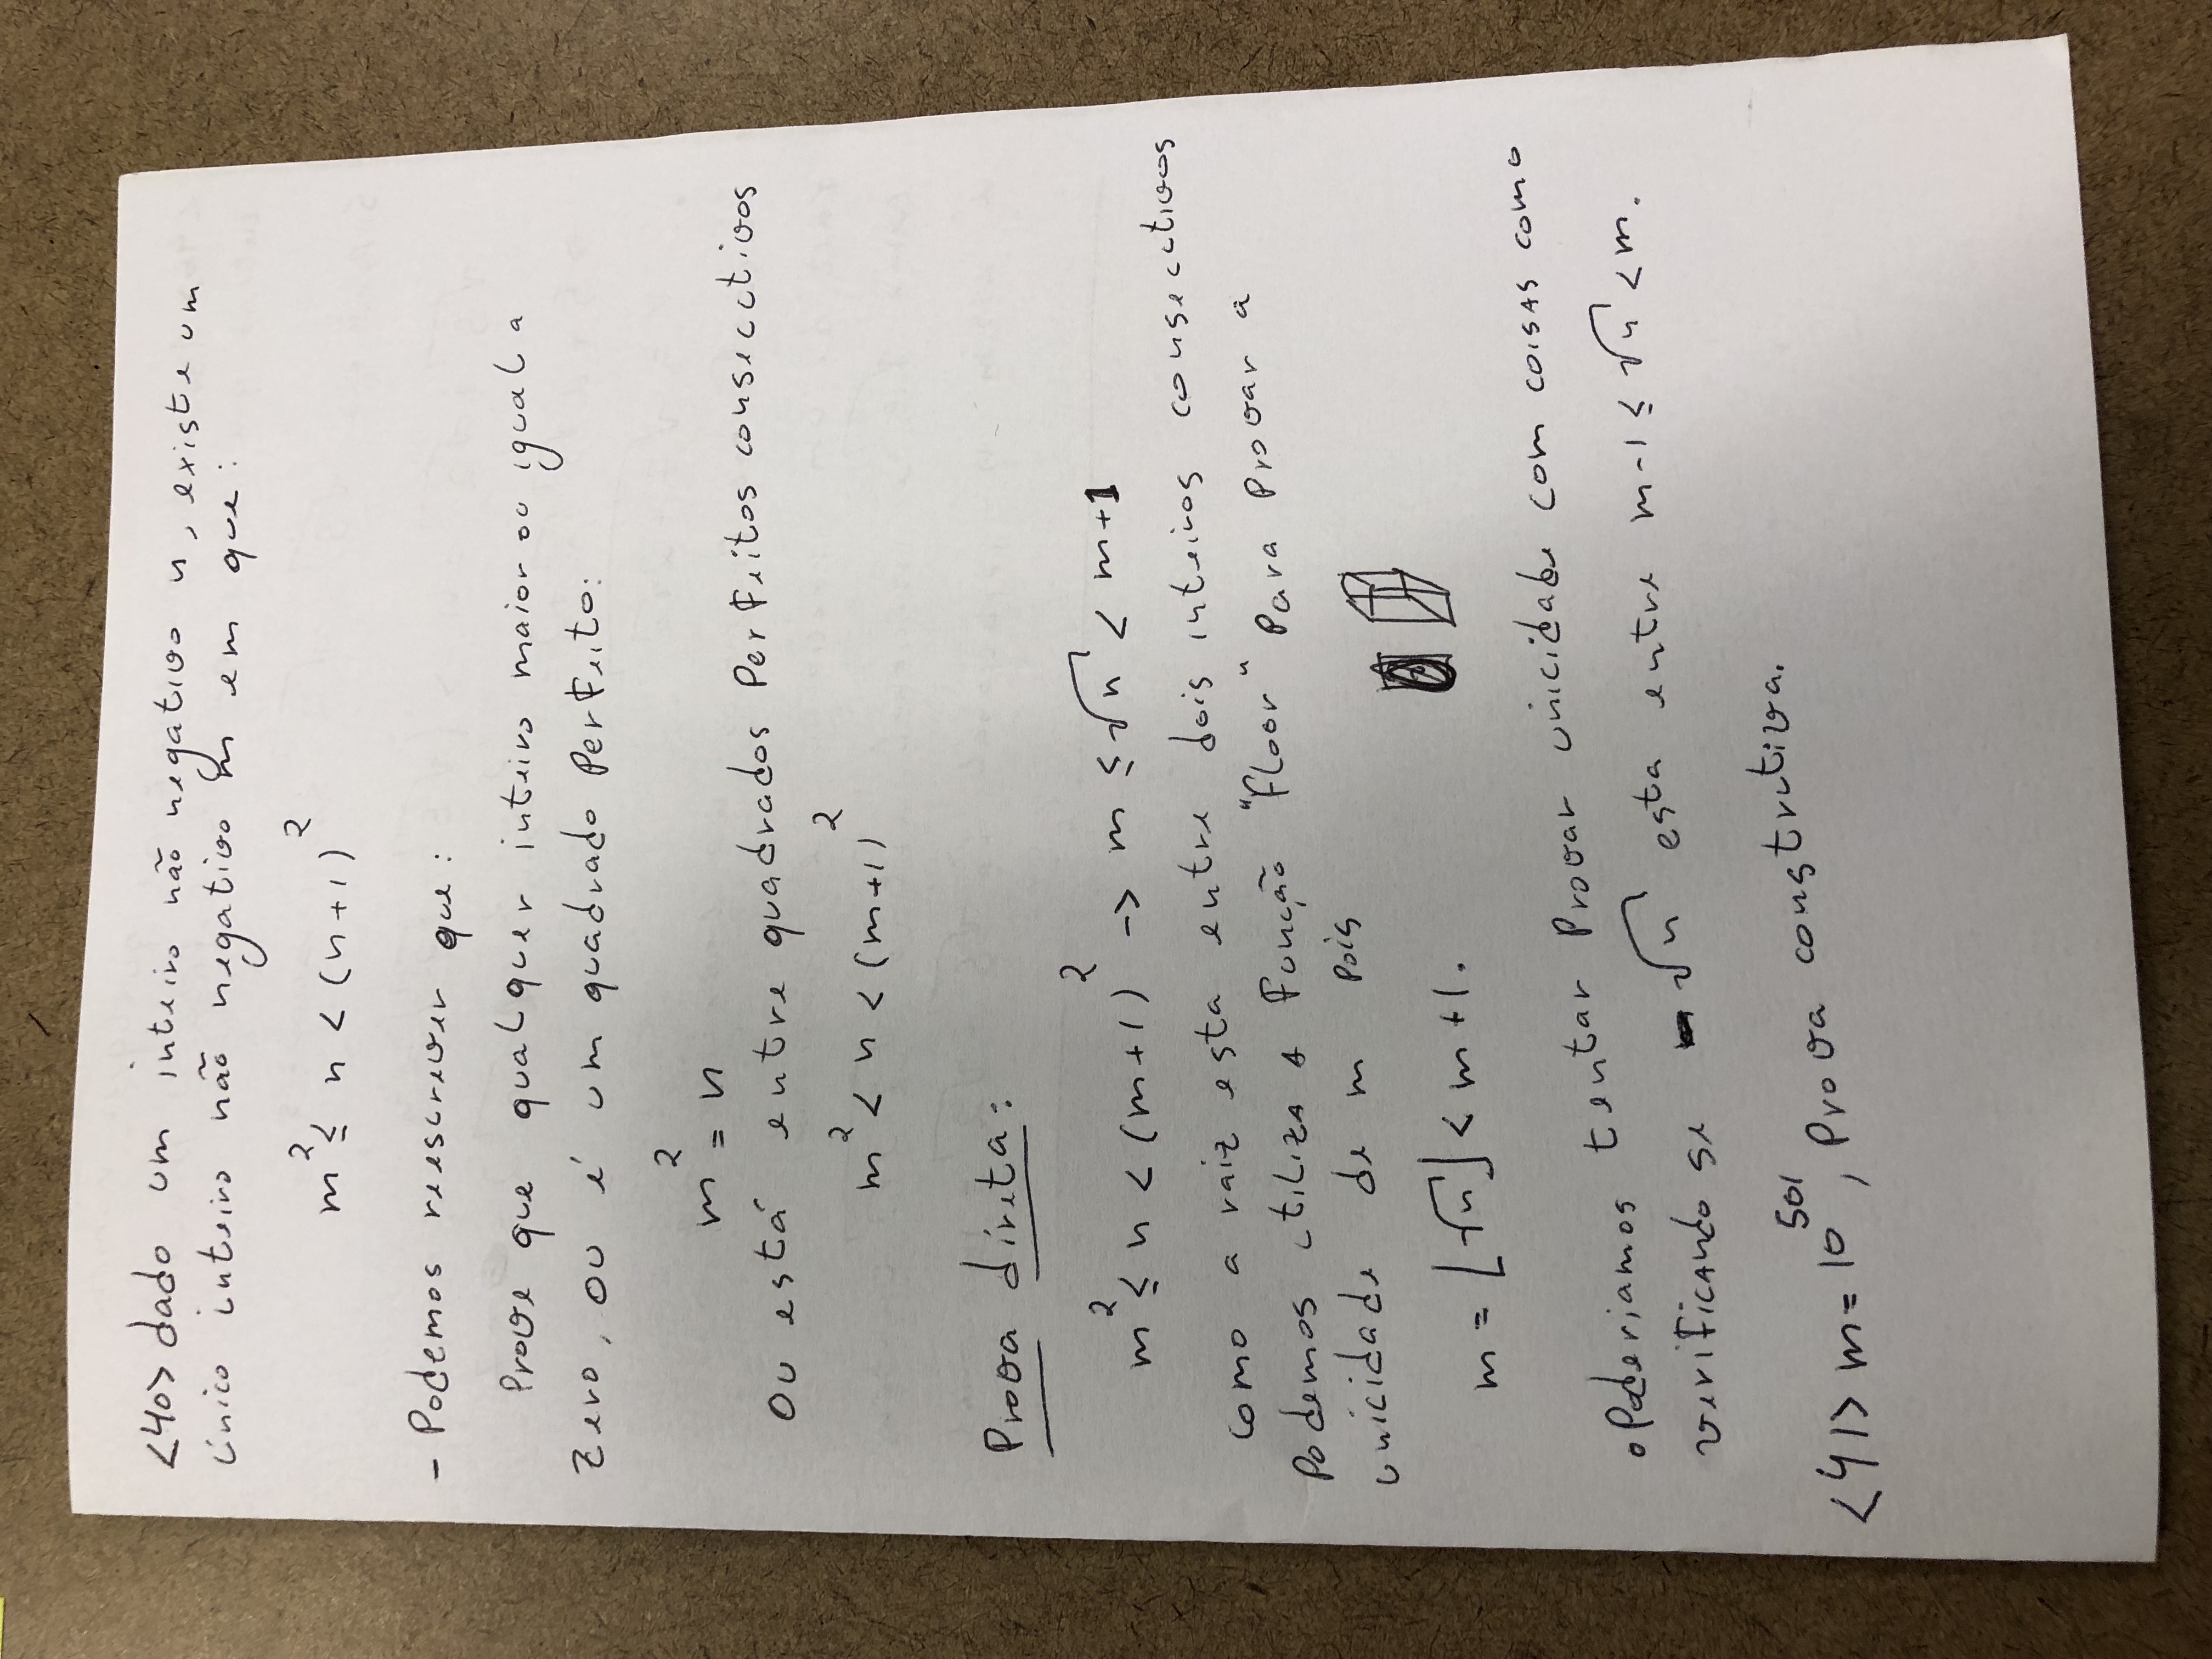 <40> dado um inteiro não negativo n, existe um
único inteiro não negativo m em que:
m² ≤ n < (n+1)²
- Podemos reescrever que:
Prove que qualquer inteiro maior ou igual a
zero, ou é um quadrado Perfeito:
m² = n
Ou está entre quadrados Perfeitos consecutivos
m² < n < (m+1)²
Prova direta:
m² ≤ n < (m+1)² -> m ≤ √n < m+1
como a raiz esta entre dois inteiros consecutivos
Podemos utiliza a Função "Floor" Para Provar a
unicidade de m Pois
m = ⌊√n⌋ < m+1.
Poderiamos tentar Provar unicidade com coisas como
verificando se √n esta entre m-1 ≤ √n < m.
<41> m = 10⁵⁰¹, Prova construtiva.